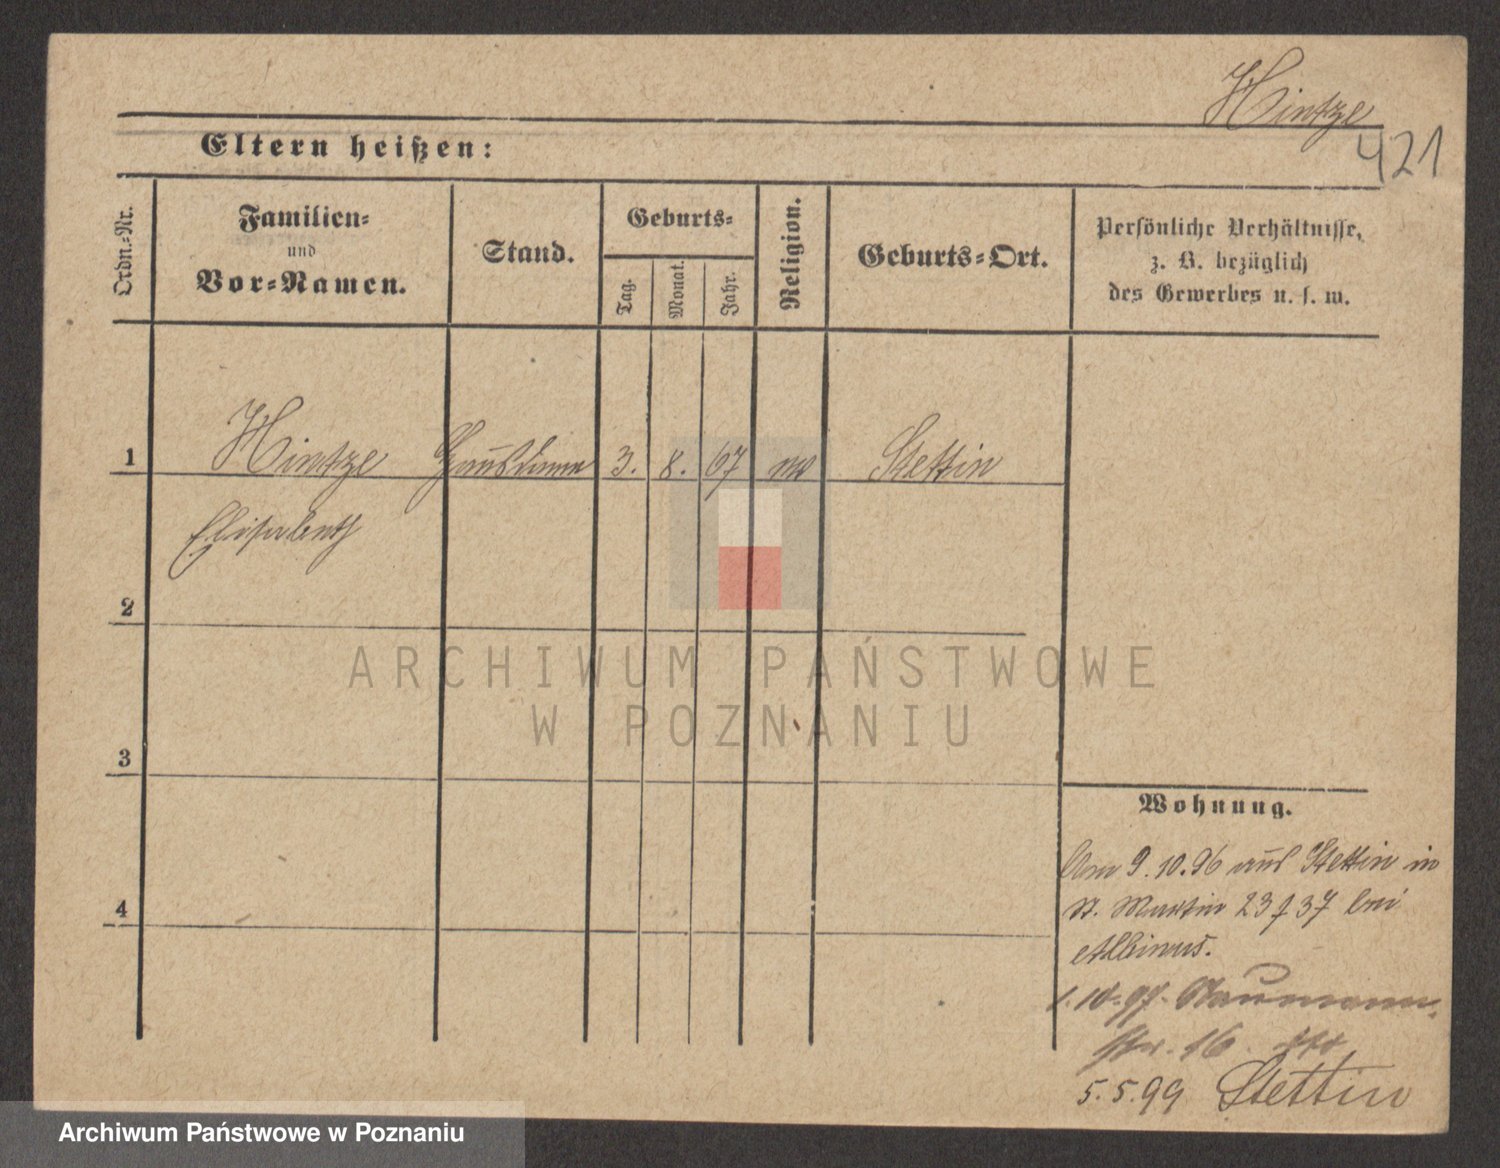 Hintze
421
Eltern heißen:
Ordn.-Nr.
Familien-
und
Vor-Namen.
Stand.
Geburts-
Tag.
Monat.
Jahr.
Religion.
Geburts-Ort.
Persönliche Verhältnisse,
z. B. bezüglich
des Gewerbes u. s. w.
1 Hintze 3. 8. 67 Stettin
Elisabeth
2
3
4
Wohnung.
Am 9.10.96 aus Stettin in
St. Martin 23 37 bei
Albinus.
1.10.97. Naumann
str. 16
5.5.99 Stettin
ARCHIWUM PAŃSTWOWE
W POZNANIU
Archiwum Państwowe w Poznaniu